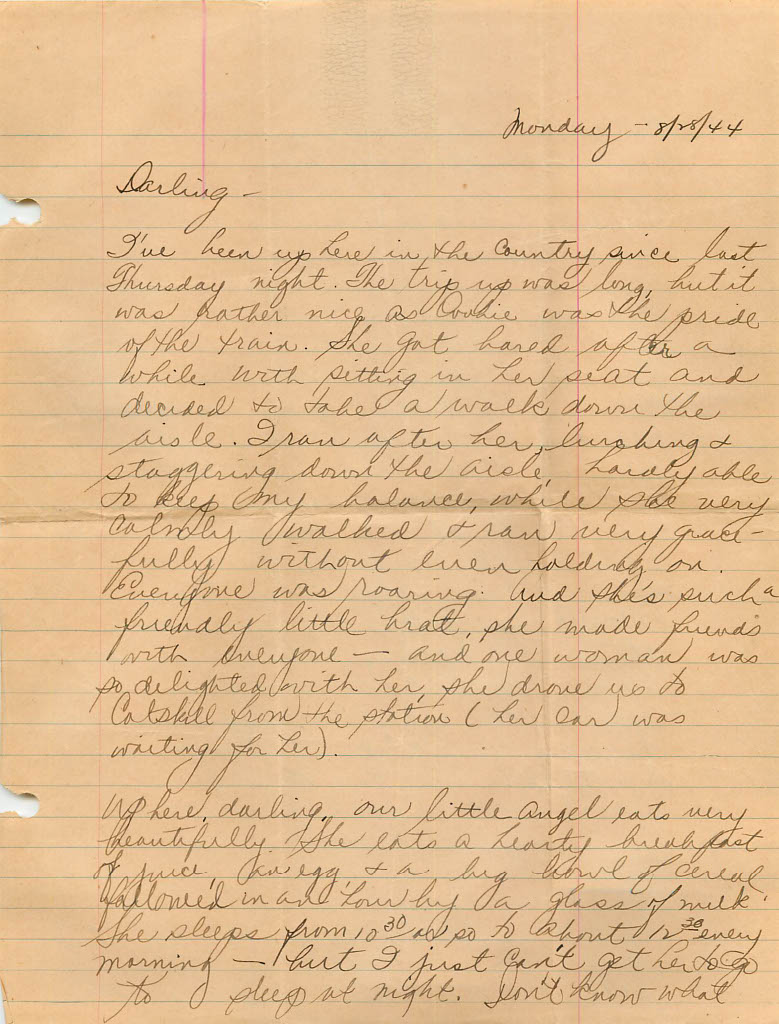 Monday - 8/28/44
Darling -
I've been up here in the country since last
Thursday night. The trip up was long, but it
was rather nice as Cookie was the pride
of the train. She got bored after a
while with sitting in her seat and
decided to take a walk down the
aisle. I ran after her, lurching &
staggering down the aisle, hardly able
to keep my balance, while she very
calmly walked & ran very grace-
fully without even holding on.
Everyone was roaring. And she's such a
friendly little brat, she made friends
with everyone — and one woman was
so delighted with her, she drove us to
Catskill from the station (her car was
waiting for her).
Up here, darling, our little angel eats very
beautifully. She eats a hearty breakfast
of juice, an egg & a big bowl of cereal
followed in an hour by a glass of milk.
She sleeps from 10 30 or so to about 12 30 every
morning — but I just can't get her to go
to sleep at night. Don't know what